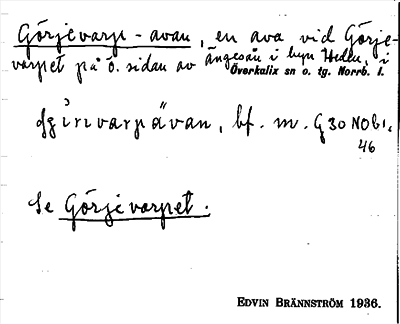 Görjevarp-avan, en ava vid Görje-
varpet på ö. sidan av ängesån i byn Heden, i
Överkalix sn o. tg. Norrb. l.
bf. m. G 30 NOb 1.
46
Se Görjevarpet.
EDVIN BRÄNNSTRÖM 1936.